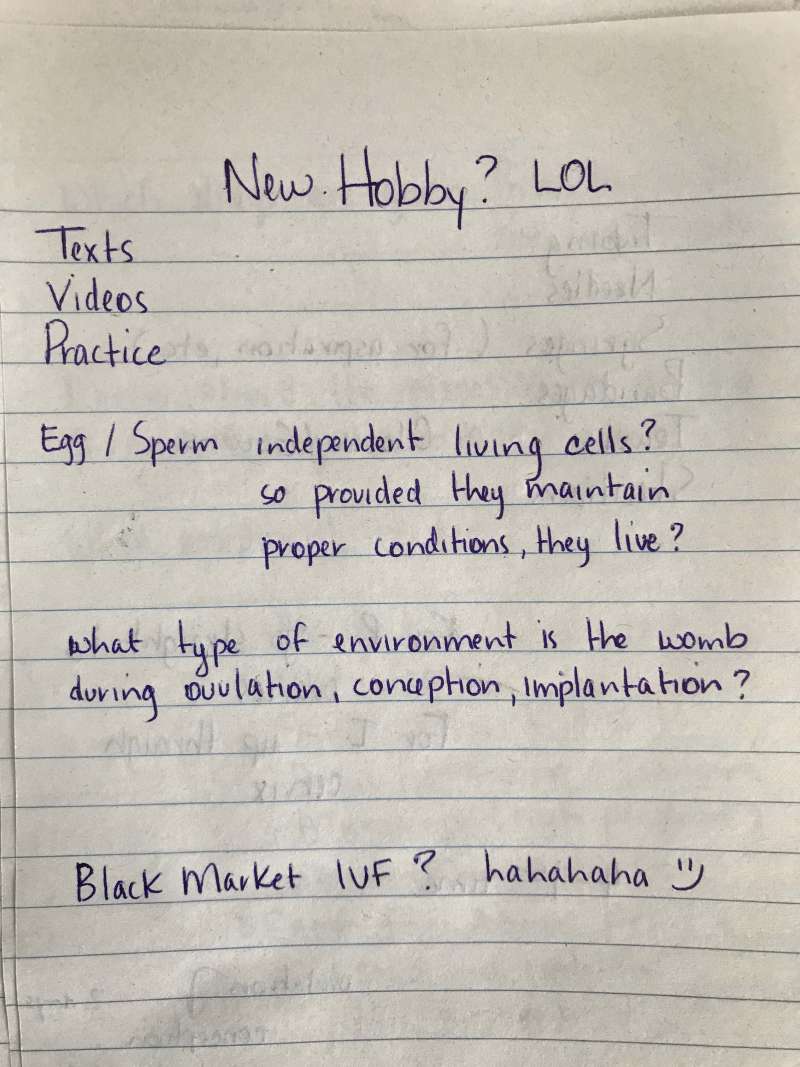 New. Hobby? LOL
Texts
Videos
Practice
Egg / Sperm independent living cells?
so provided they maintain
proper conditions, they live?
what type of environment is the womb
during ovulation, conception, implantation?
Black Market IVF ? hahahaha